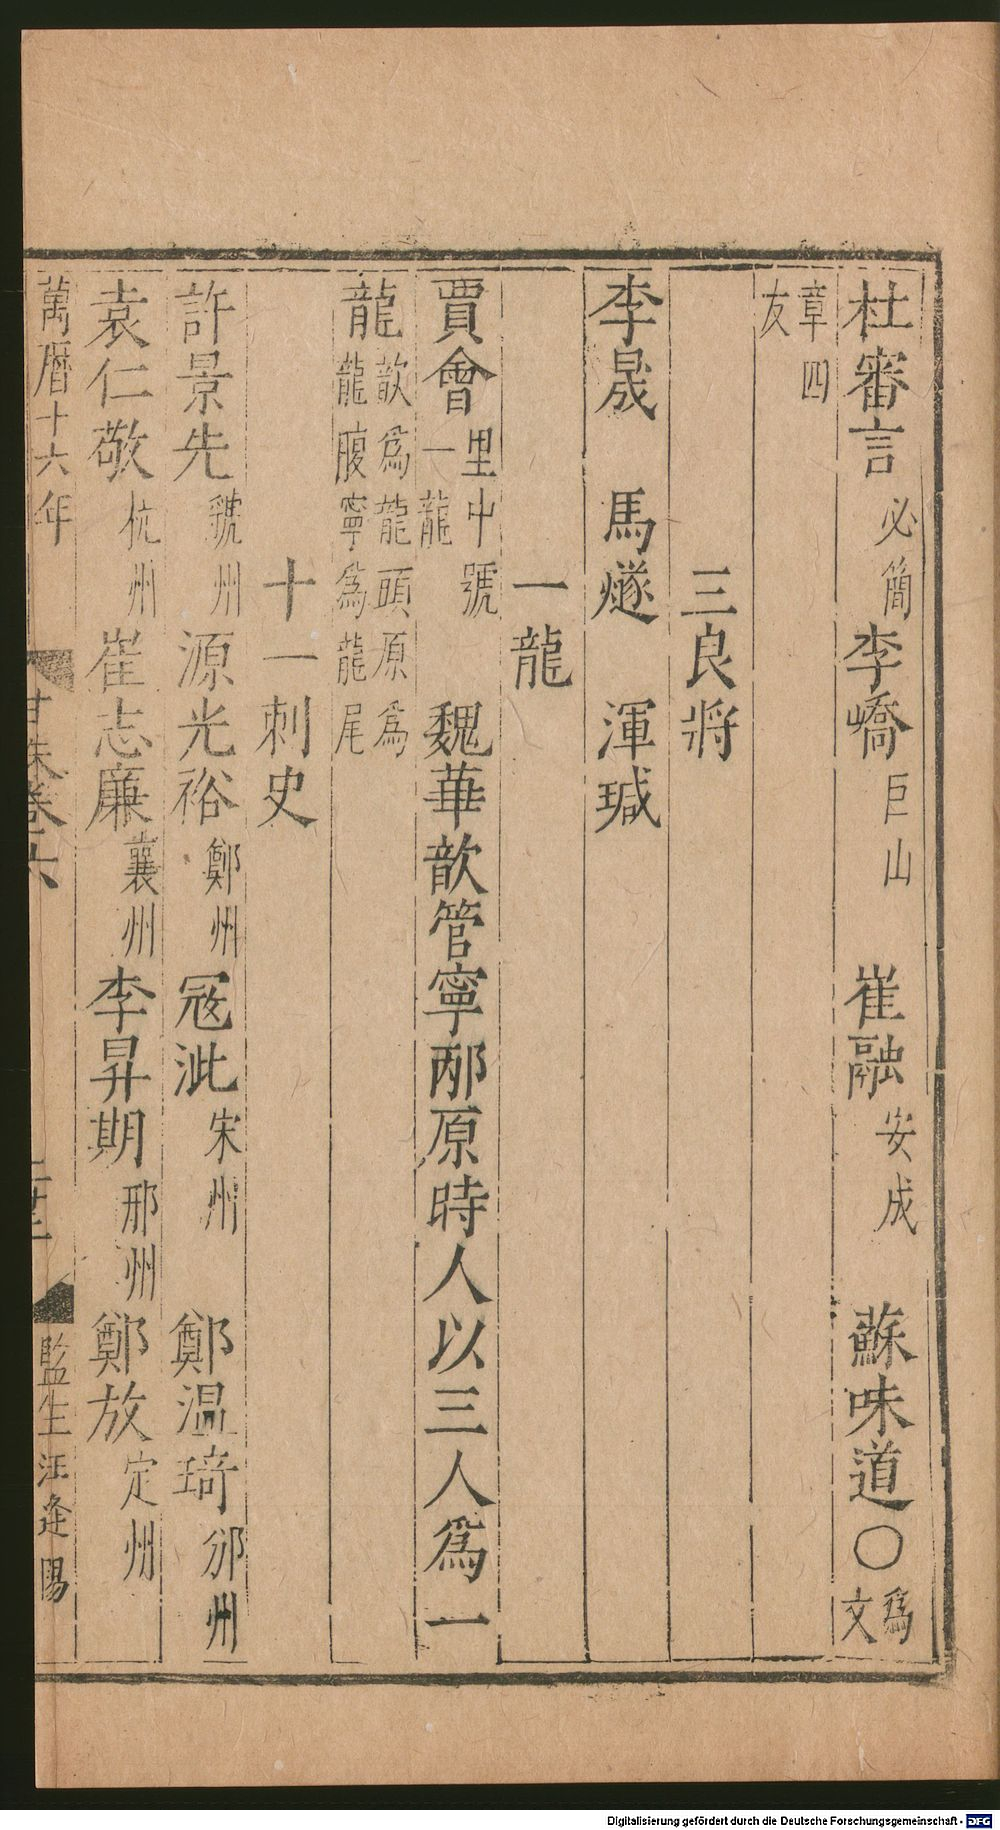 杜審言必簡李嶠巨山崔融安成蘇味道〇爲文
章四友
三良將
李晟 馬燧 渾瑊
一龍
賈會里中號一龍 魏華歆管寧邴原時人以三人爲一
龍歆爲龍頭原爲龍腹寧爲龍尾
十一刺史
許景先虢州源光裕鄭州冦泚宋州鄭温琦邠州
袁仁敬杭州崔志廉襄州李昇期邢州鄭放定州
萬曆十六年
監生汪逢陽
Digitalisierung gefördert durch die Deutsche Forschungsgemeinschaft - DFG